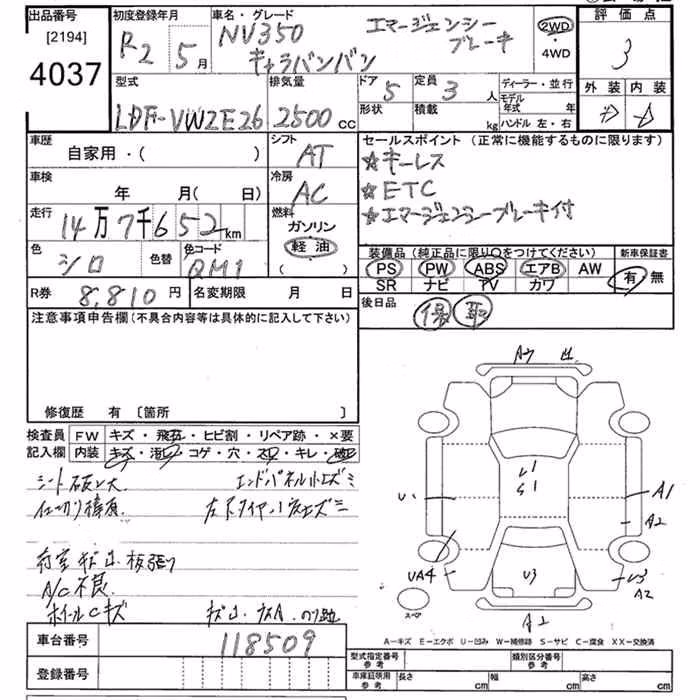 出品番号 初度登録年月 車名・グレード 評価点
[2194] R2 5月 NV350 エマージェンシーブレーキ 2WD 3
4037 キャラバンバン ・4WD
型式 排気量 ドア 5 定員 3人 ディーラー・並行 外装 内装
形状 積載 kg モデル年式 年
LDF-VW2E26 2500cc ハンドル 左・右
車歴 シフト セールスポイント (正常に機能するものに限ります)
自家用・( ) AT ☆キーレス
車検 冷房 ☆ETC
年 月( 日) AC ☆エマージェンシーブレーキ付
走行 燃料
14万7千652km ガソリン
軽油
( )
色 シロ 色替 色コード QM1
装備品 (純正品に限り○をつけてください) 新車保証書
PS PW ABS エアB AW 有・無
SR ナビ TV カワ
R券 8,810円 名変期限 月 日 後日品 保 取
注意事項申告欄 (不具合内容等は具体的に記入して下さい)
修復歴 有 [箇所 ]
検査員 FW キズ・飛石・ヒビ割・リペア跡・×要
記入欄 内装 キズ・汚レ・コゲ・穴・スレ・キレ・破レ
シート破レ大 エンドパネル小キズミ
荷室 キズ凹 板張り
A/C不良
ホイールCキズ
A7 凹
U1
S1
U1
A1
A2
UA4
U3
U3
A2
スペア
A2
A-キズ E-エクボ U-凹み W-補修跡 S-サビ C-腐食 XX-交換済
車台番号 118509
登録番号
型式指定番号 参考 類別区分番号 参考
車庫証明用 参考 長さ cm 幅 cm 高さ cm